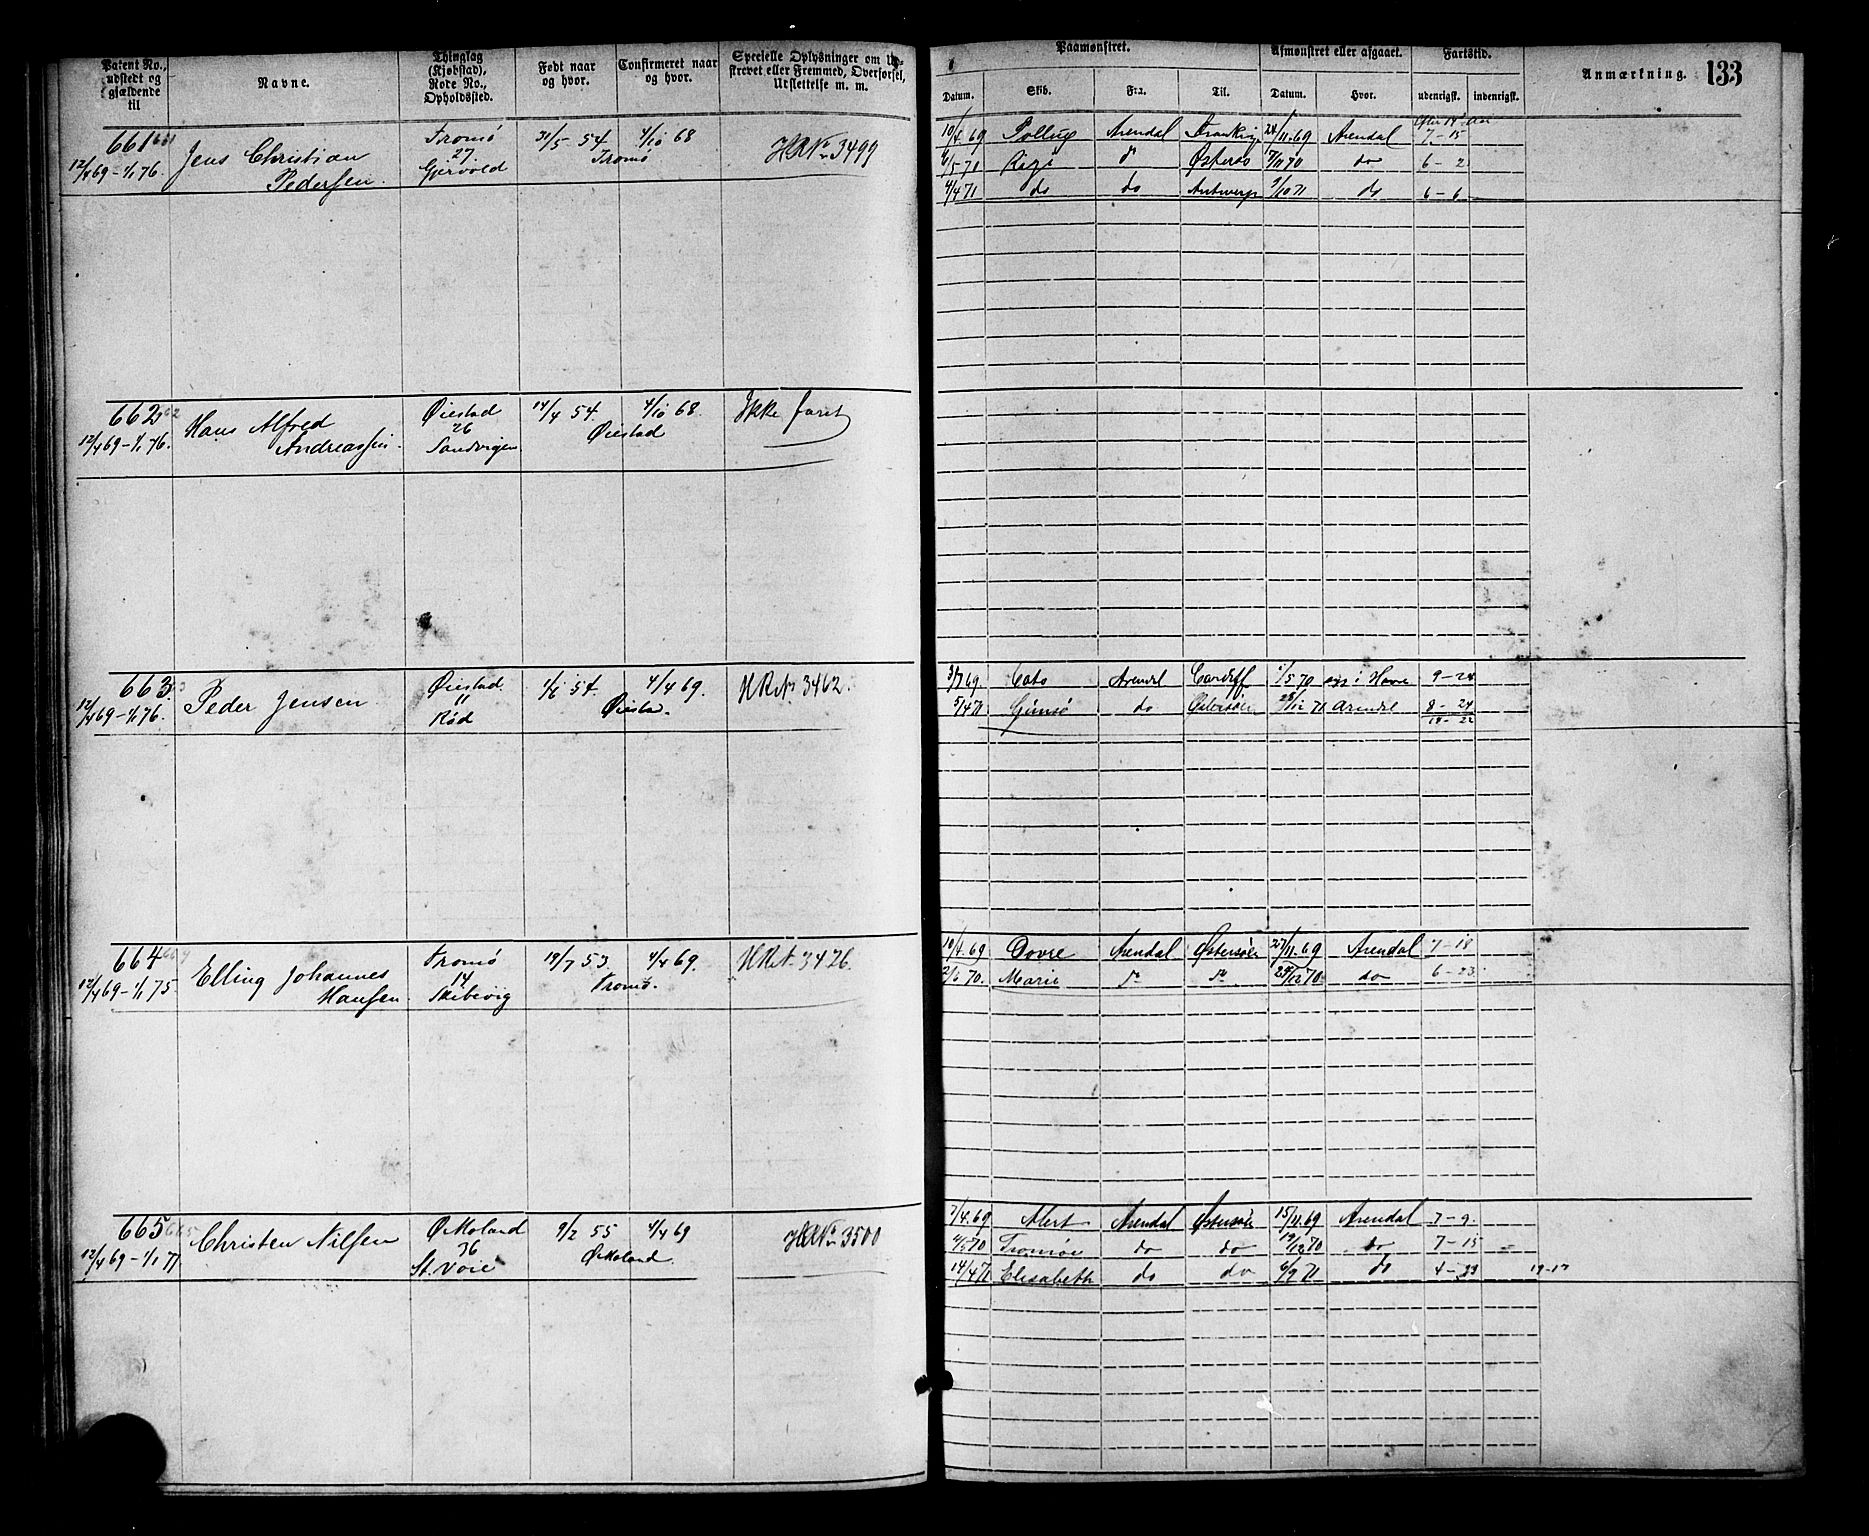 Patent No., udstedt og gjældende til
Navne.
Thinglag (Kjøbstad), Rode No., Opholdssted.
Født naar og hvor.
Confirmeret naar og hvor.
Specielle Oplysninger om Ud-
skrevet eller Fremmed, Overførsel,
Udslettelse m. m.
Paamønstret.
Afmønstret eller afgaaet.
Fartstid.
Anmærkning.
133
Datum.
Skib.
Fra.
Til.
Datum.
Hvor.
udenrigsk.
indenrigsk.
661
12/4 69 - 1/1 76.
Jens Christian
Pedersen.
Tromø
27
Gjervold
31/5 54
4/10 68
Tromø
HR No 3499
10/4 69 Pollux Arendal 24/11 69 Arendal 7 - 15
6/5 70 do Østersø 7/11 70 do 6 - 2
4/4 71 do do Antwerp 9/10 71 do 6 - 6
662
12/4 69 - 1/1 76.
Hans Alfred
Andreassen.
Øiestad
26
Sandvigen
14/4 54
4/10 68.
Øiestad
Ikke faret
663
12/4 69 - 1/1 76.
Peder Jensen
Øiestad
11
Rød
1/6 54.
4/4 69.
Øiestad.
HR No 3462.
3/7 69. Cato Arendl Cardiff 1/5 70 Havre 9 - 24
5/4 71 Gimsø do Østersøen 28/12 71 Arendl 8 - 24
664
12/4 69 - 1/1 75
Elling Johannes
Hansen.
Tromø
14
Skibevig
19/7 53
4/4 69.
Tromø.
HR No 3426.
10/4 69 Dovre Arendal Østersøen 27/11 69 Arendal 7 - 18
2/6 70. Marie do do 28/12 70 do 6 - 23
665
12/4 69 - 1/1 77
Christen Nilsen
Ø Moland
36
St. Voie
9/2 55
4/4 69
Ø Moland.
HR No 3500
7/4 69 Alert Arendal Østersøen 15/11 69 Arendal 7 - 9.
4/5 70 Tromøe do do 19/12 70 do 7 - 15
14/4 71 Elisabeth do do 6/9 71 do 19 - 17